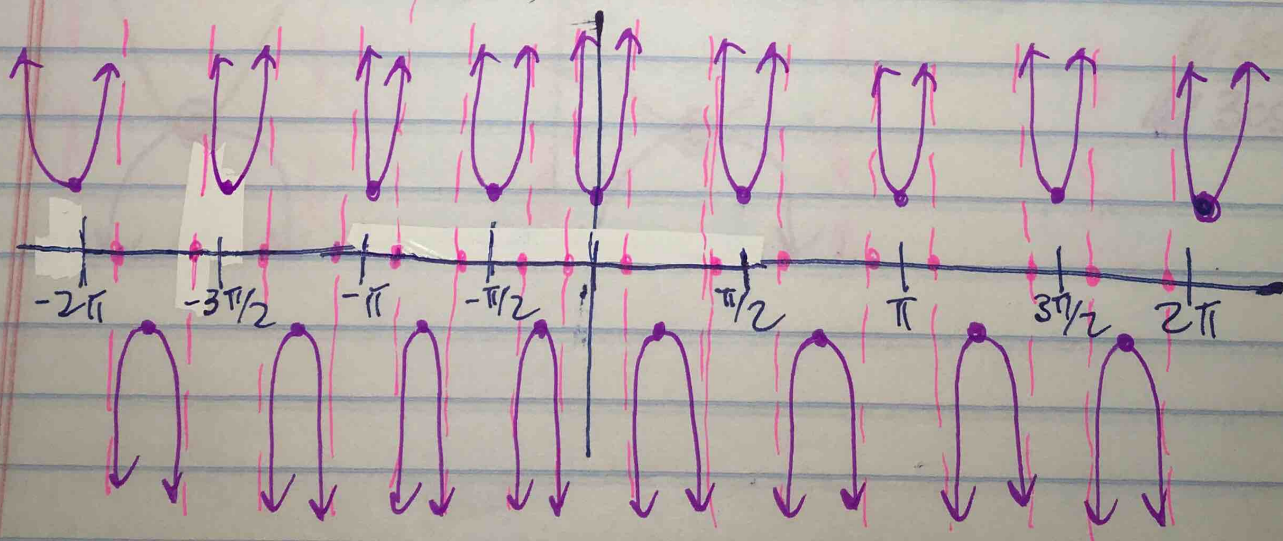 -2π -3π/2 -π -π/2 π/2 π 3π/2 2π